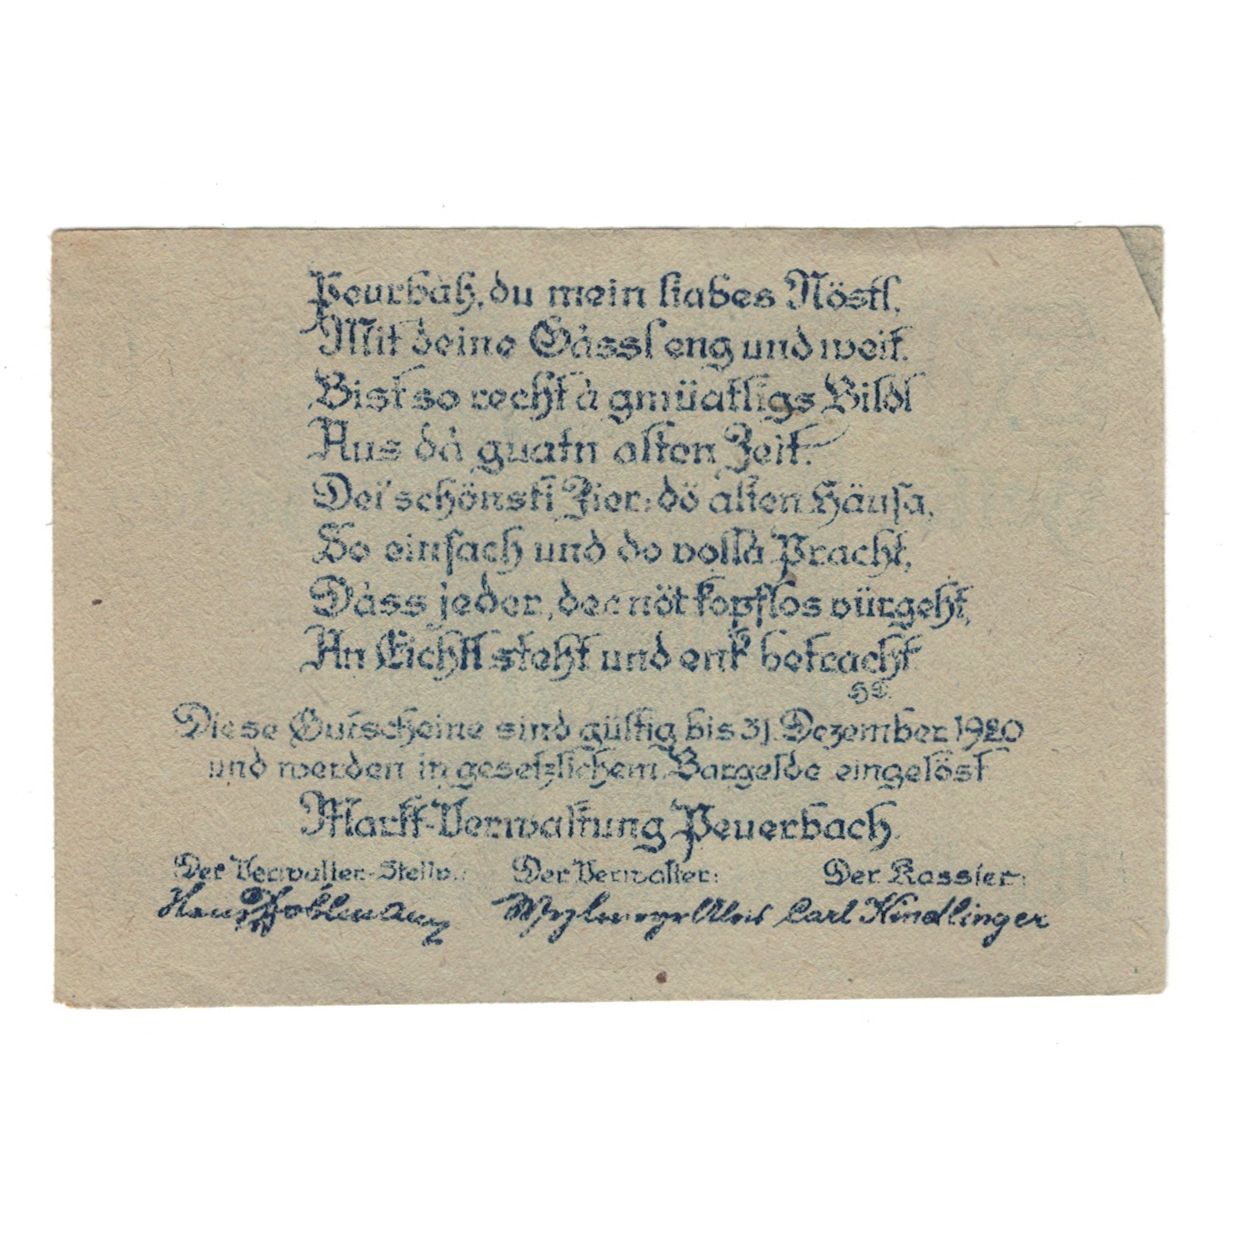 Peurbàh, du mein liabes Nöstl,
Mit deine Gàssl eng und weit.
Bist so recht à gmüatligs Bildl
Aus dà guatn alten Zeit.
Dei schönsti Zier: dö alten Häusa,
So einfach und do vollà Pracht,
Dàss jeder, der nöt kopflos vürgeht,
An Eichtl steht und enk betracht
Diese Gutscheine sind gültig bis 31. Dezember 1920
und werden in gesetzlichem Bargelde eingelöst
Markt-Verwaltung Peuerbach.
Der Verwalter-Stellv.: Der Verwalter: Der Kassier:
Hans Carl Kindlinger